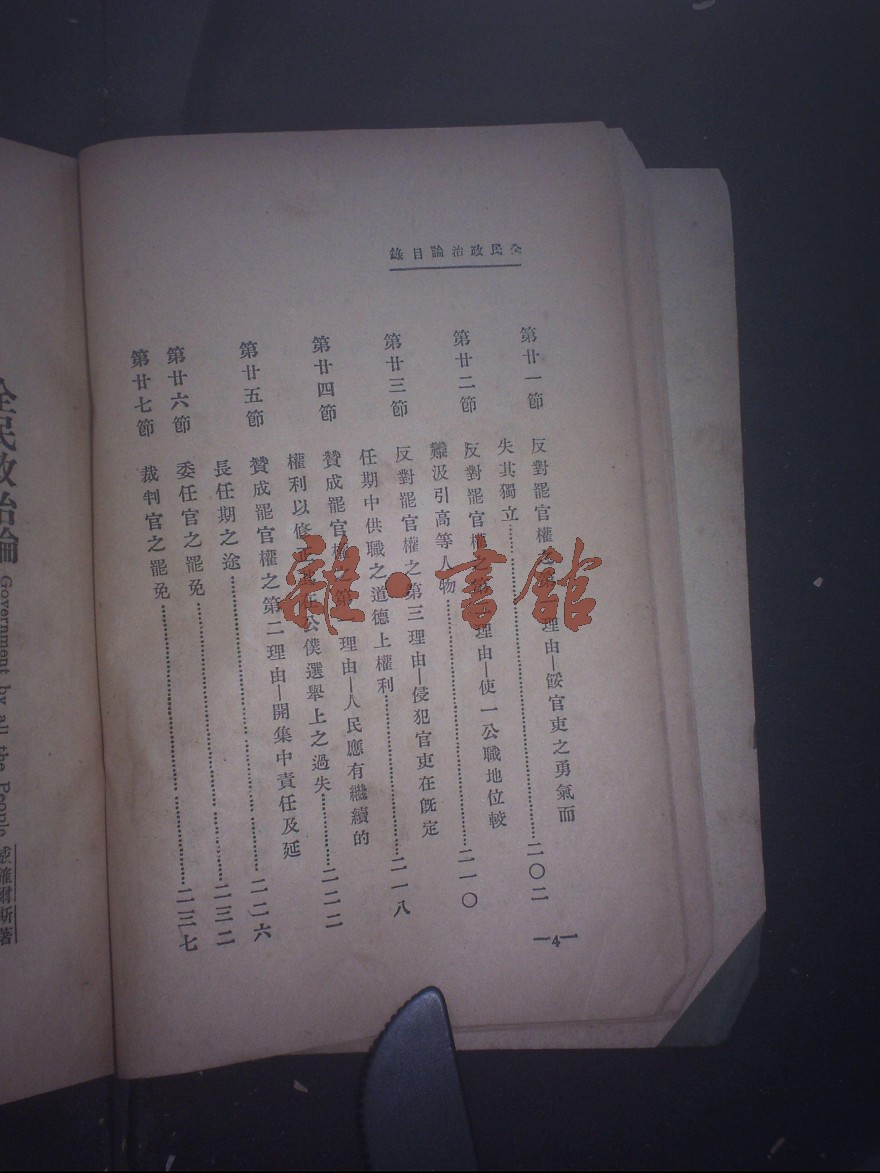 全民政治論目錄
第廿一節 反對罷官權之第 理由—餒官吏之勇氣而
失其獨立…………二〇二
第廿二節 反對罷官權之第二理由—使一公職地位較
難汲引高等人物…………二一〇
第廿三節 反對罷官權之第三理由—侵犯官吏在既定
任期中供職之道德上權利…………二一八
第廿四節 贊成罷官權之第一理由—人民應有繼續的
權利以修正 在公僕選舉上之過失…………二二二
第廿五節 贊成罷官權之第二理由—開集中責任及延
長任期之途…………二二六
第廿六節 委任官之罷免…………二三二
第廿七節 裁判官之罷免…………二三七
—4—
雜·書館
全民政治論 Government by all the People 威確爾斯著